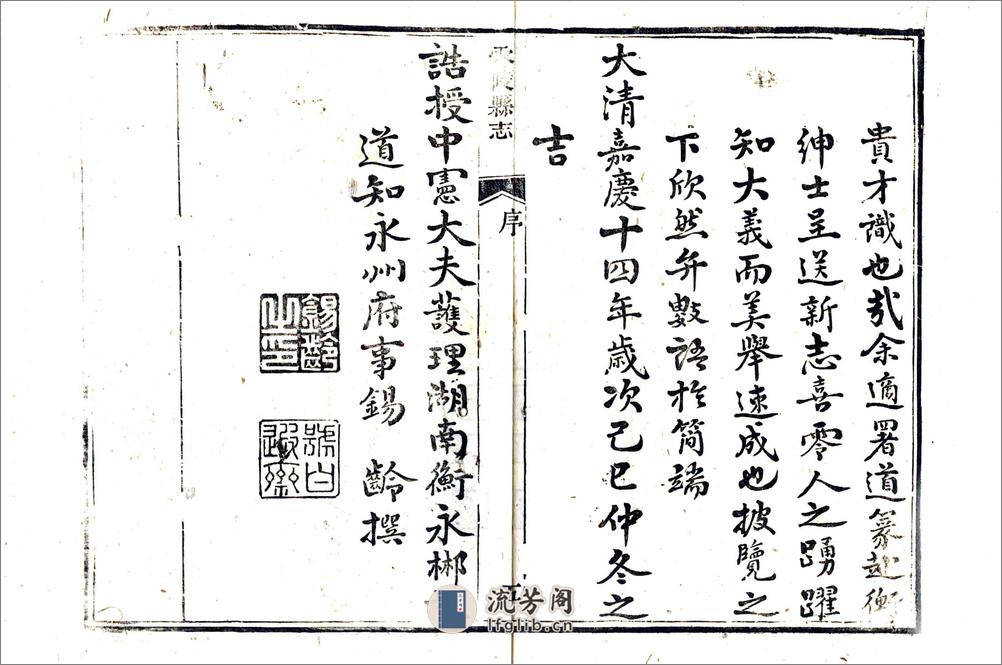 貴才識也哉余適署道篆赴衡
紳士呈送新志喜零人之踴躍
知大義而美舉速成也披覽之
下欣然弁數語於簡端
大清嘉慶十四年歲次己巳仲冬之
吉
縣志
序
五
誥授中憲大夫護理湖南衡永郴
道知永州府事錫 齡撰
錫齡之印
號白
流芳阁
lfglib.cn